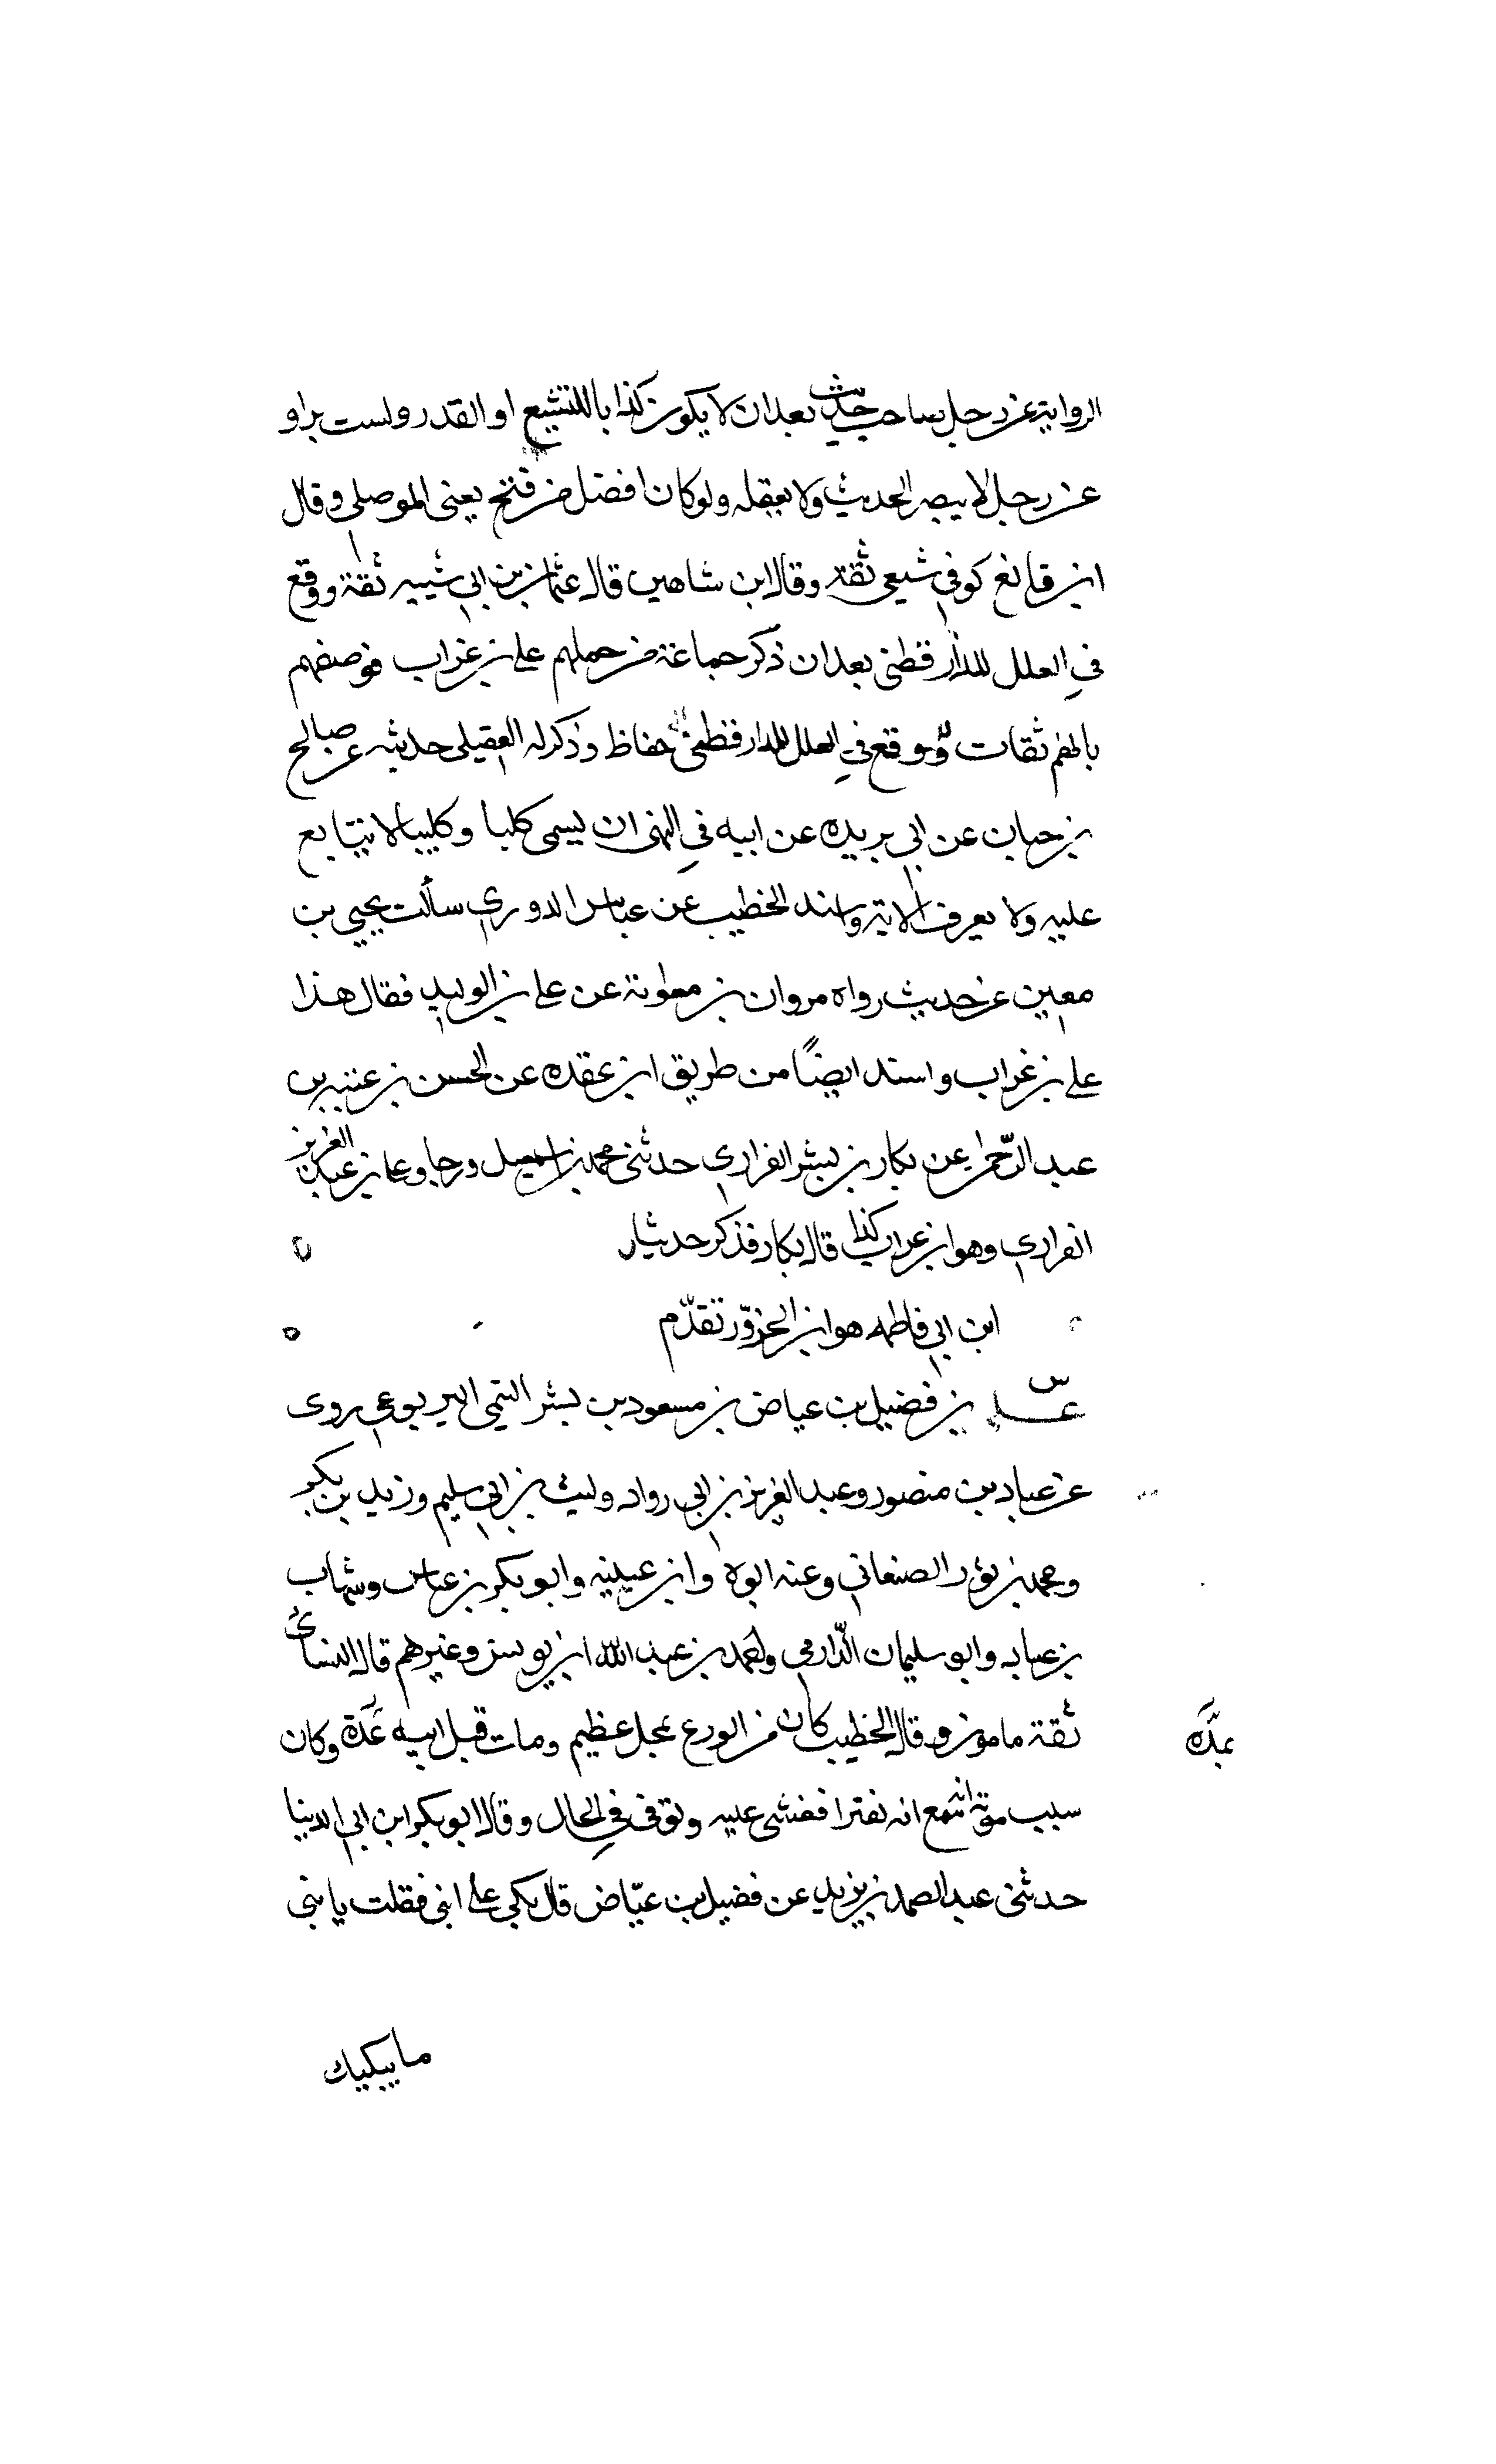 الرواية عن رجل صاحب حديث بعد ان لا يكون كذابا للتشيع او القدر ولست براو
عن رجل لا يبصر الحديث ولا يعقله ولو كان افضل من فتح يعنى الموصلى وقال
ابن قانع كوفي شيعى ثقة وقال ابن شاهين قال عثمان بن ابي شيبه ثقة ووقع
في العلل للدارقطنى بعد ان ذكر جماعة من جملهم على بن غراب فوصفهم
بانهم ثقات ووقع في العلل للدارقطنى حفاظ وذكر له العقيلى حديثه عن صالح
بن حبان عن ابي بريده عن ابيه في النهى ان يسمى كلبا وكليبا لا يتابع
عليه ولا يعرف الا به واسند الخطيب عن عباس الدوري سألت يحيي بن
معين عن حديث رواه مروان بن معاوية عن على بن الوليد فقال هذا
على بن غراب واسند ايضًا من طريق ابن عقده عن الحسن بن عتبه بن
عبد الرّحمن عن بكار بن بشر الفزاري حدثنى محمد بن اسمعيل ورجا وعلى بن عبد العزيز
الفزاري وهو ابن غراب كذا قال بكار فذكر حديثا
ابن ابي فاطمه هو ابن الحزوّر تقدّم
س
علي بن فضيل بن عياض بن مسعود بن بشر التيمى اليربوعي روى
عن عباد بن منصور وعبد العزيز بن ابي رواد وليث بن ابي سليم وزيد بن بكر
ومحمد بن ثور الصنعاني وعنه ابوه وابن عيينه وابو بكر بن عياش وشهاب
بن عباد وابو سليمان الدّارمي واحمد بن عبد الله ابن يونس وغيرهم قال النسائ
ثقة مامون وقال الخطيب كان من الورع بمحل عظيم ومات قبل ابيه بمدّة وكان
بمدَّه
سبب موته انه سمع اية تقرا فغشى عليه وتوفى في الحال وقال ابو بكر ابن ابي الدنيا
حدثنى عبد الصمد بن يزيد عن فضيل بن عيّاض قال بكى على ابنى فقلت يا بنى
ما يبكيك